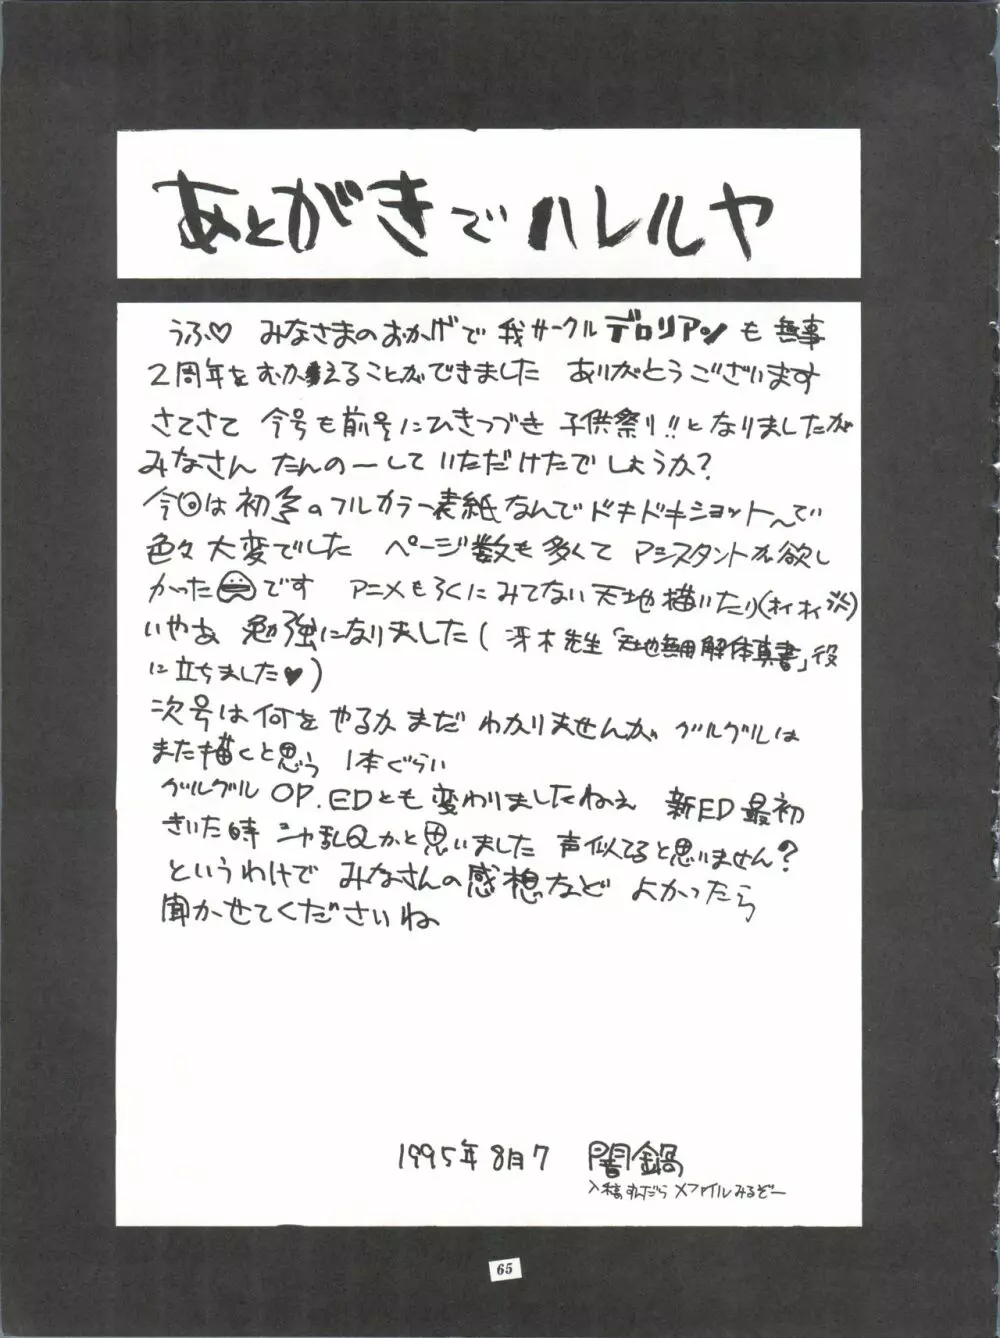 あとがきでハレルヤ
うふ♡ みなさまのおかげで我サークルデロリアンも無事
2周年をむかえることができました ありがとうございます
さてさて 今号も前号にひきつづき 子供祭り!!となりましたが
みなさん たんのーして いただけたでしょうか?
今回は初めのフルカラー表紙なんでドキドキショット〜で
色々大変でした ページ数も多くて アシスタントが欲し
かったです アニメもろくにみてない天地描いたり(オイオイ)
いやあ 勉強になりました(冴木先生「天地無用解体真書」役
に立ちました♥)
次号は何をやるか まだ わかりませんが グルグルは
また描くと思う 1本ぐらい
グルグル OP.EDとも変わりましたねぇ 新ED最初
きいた時 シャ乱Qかと思いました 声似てると思いません?
というわけで みなさんの感想など よかったら
聞かせてくださいね
1995年8月7 闇鍋
入稿すんだら Xファイルみるぞー
65